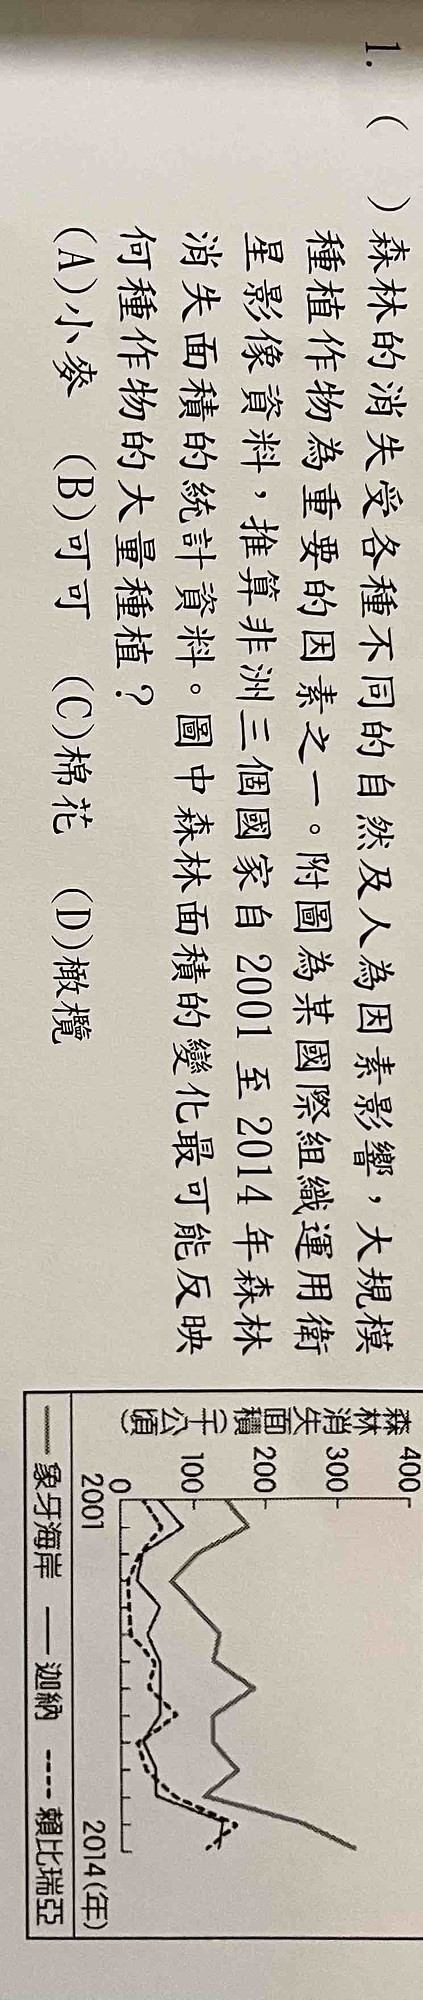 1. (　　)森林的消失受各種不同的自然及人為因素影響，大規模
種植作物為重要的因素之一。附圖為某國際組織運用衛
星影像資料，推算非洲三個國家自 2001 至 2014 年森林
消失面積的統計資料。圖中森林面積的變化最可能反映
何種作物的大量種植？
(A)小麥　(B)可可　(C)棉花　(D)橄欖
森林消失面積(千公頃)
400
300
200
100
0
2001　2014(年)
象牙海岸　迦納　賴比瑞亞